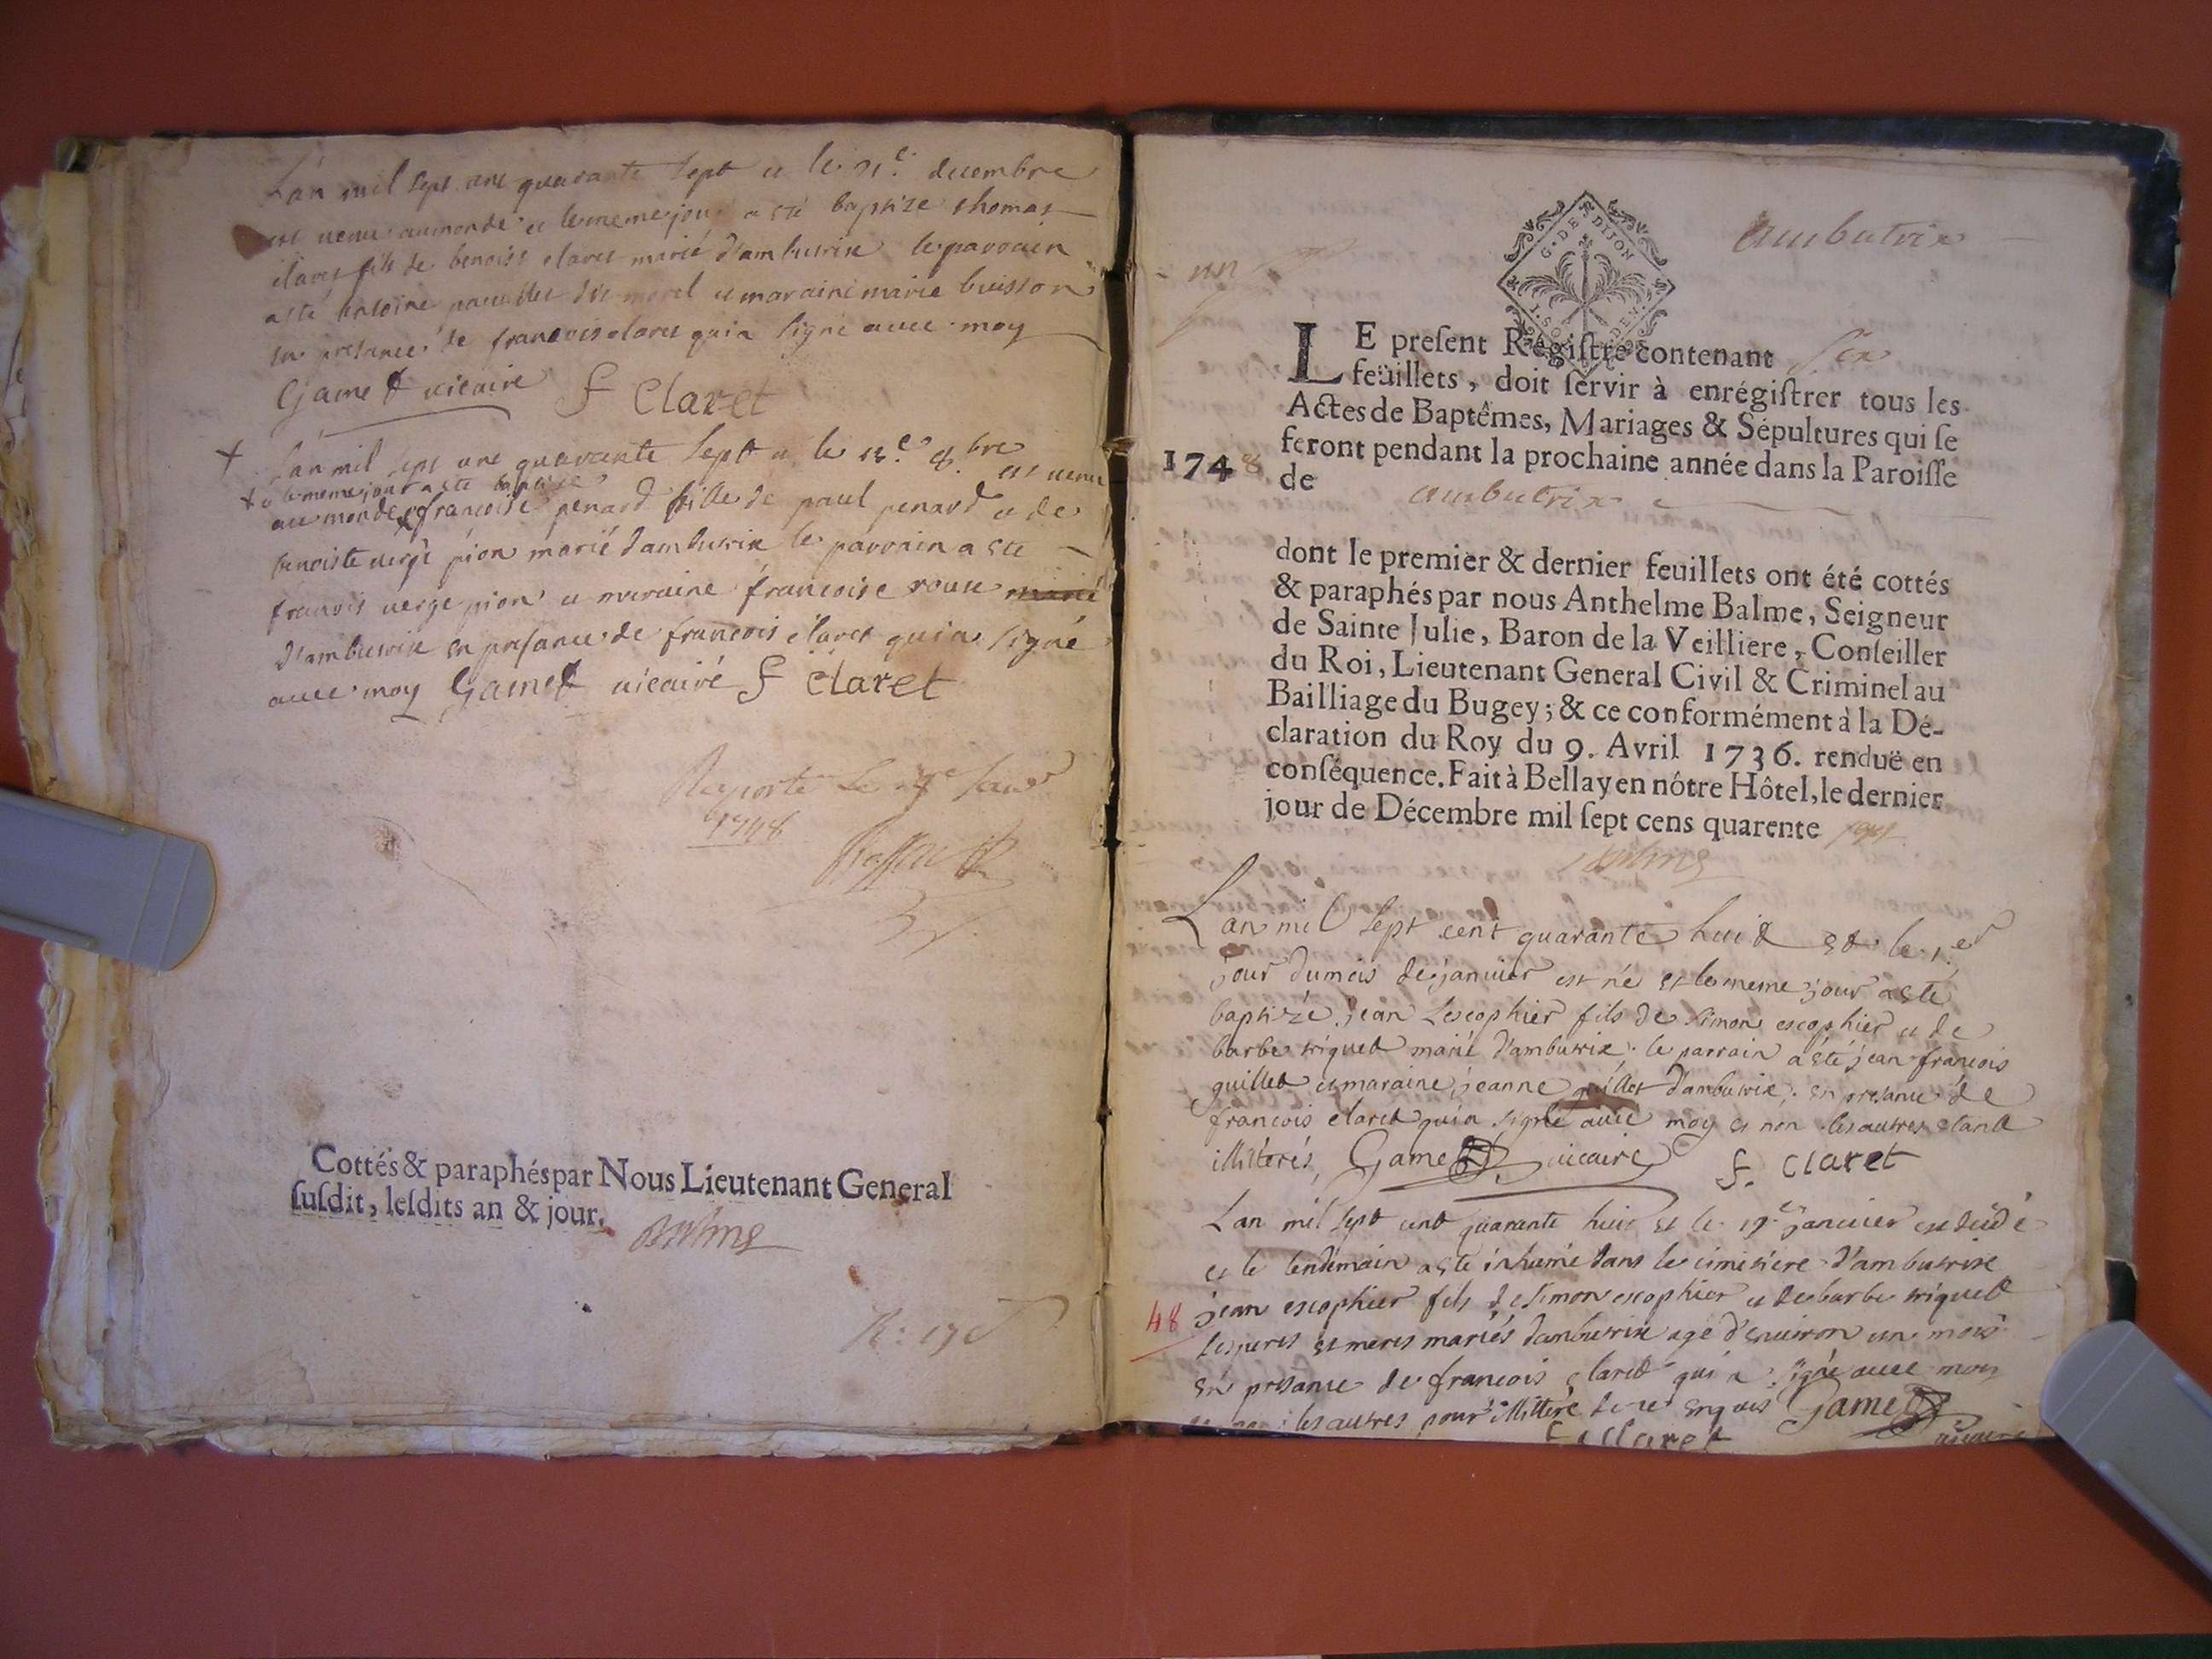 L'an mil sept cent quarante sept et le 21e decembre
est venu aumonde et le meme jour a esté baptize thomas
claret fils de benoist claret marié d'ambutrix le parrain
a esté antoine morel et maraine marie buisson
en presance de francois claret qui a signé avec moy
Gamet vicaire F Claret
+ L'an mil sept cent quarante sept et le 8.bre est venu
+ et le meme jour a esté baptisée
au monde francoise penard fille de paul penard et de
benoiste verge pion marié d'ambutrix le parrain a esté
francois verge pion et maraine francoise roux marié
d'ambutrix en presance de francois claret qui a signé
avec moy Gamet vicaire F Claret
1748
Cottés & paraphés par Nous Lieutenant General
ſuſdit, leſdits an & jour.
Balme
ambutrix
G. DE DIJON
LE preſent Régiſtre contenant six
feüillets, doit ſervir à enrégiſtrer tous les
Actes de Baptêmes, Mariages & Sépultures qui ſe
feront pendant la prochaine année dans la Paroiſſe
1748 de ambutrix
dont le premier & dernier feuillets ont été cottés
& paraphés par nous Anthelme Balme, Seigneur
de Sainte Julie, Baron de la Veilliere, Conſeiller
du Roi, Lieutenant General Civil & Criminel au
Bailliage du Bugey; & ce conformément à la Dé-
claration du Roy du 9. Avril 1736. renduë en
conſéquence. Fait à Bellay en nôtre Hôtel, le dernier
jour de Décembre mil ſept cens quarente sept
Balme
L'an mil sept cent quarante huit et le 1.er
jour dumois de janvier est né et le meme jour a esté
baptizé jean Lescophier fils de simon escophier et de
barbe triquet marié d'ambutrix; le parrain a esté jean francois
quillet et maraine jeanne quillet d'ambutrix; en presance de
francois claret qui a signé avec moy et non les autres etant
illitterés, Gamet vicaire F. Claret
L'an mil sept cent quarante huit et le 17.e janvier est decedé
et le lendemain a esté inhumé dans le cimetiere d'ambutrix
48 jean escophier fils de simon escophier et de barbe triquet
ses peres et meres mariés d'ambutrix agé d'environ un mois
en presance de francois claret qui a signé avec moy
les autres pour illitteré de ce enquis Gamet
F Claret vicaire